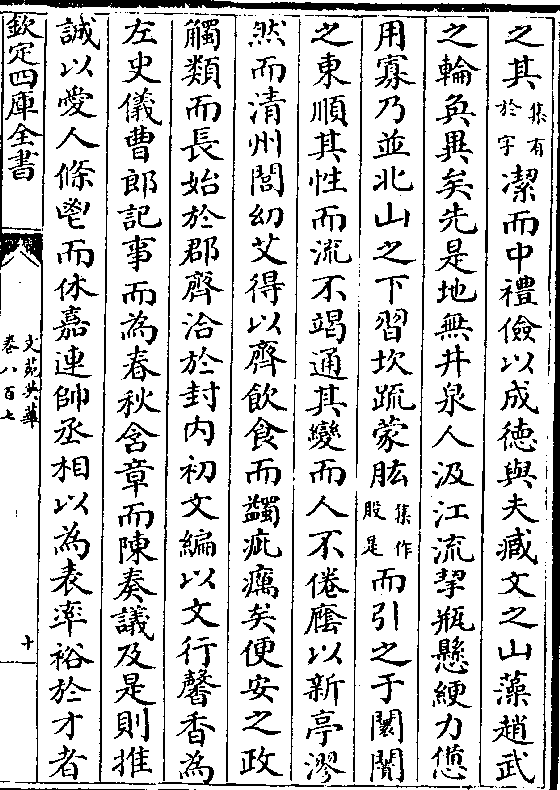 之其集有於字潔而中禮儉以成德與夫臧文之山藻趙武
之輪奐異矣先是地無井泉人汲江流挈瓶懸綆力憊
用寡乃並北山之下習坎疏蒙肱集作股是而引之于闤闠
之東順其性而流不竭通其變而人不倦㕔以新亭漻
然而清州閭幼艾得以齊飲食而蠲疵癘矣便安之政
觸類而長始於郡齊洽於封内初文編以文行馨香為
左史儀曹郎記事而為春秋含章而陳奏議及是則推
誠以愛人條鬯而休嘉連帥丞相以為表率裕於才者
欽定四庫全書
文苑英華
卷八百七
十